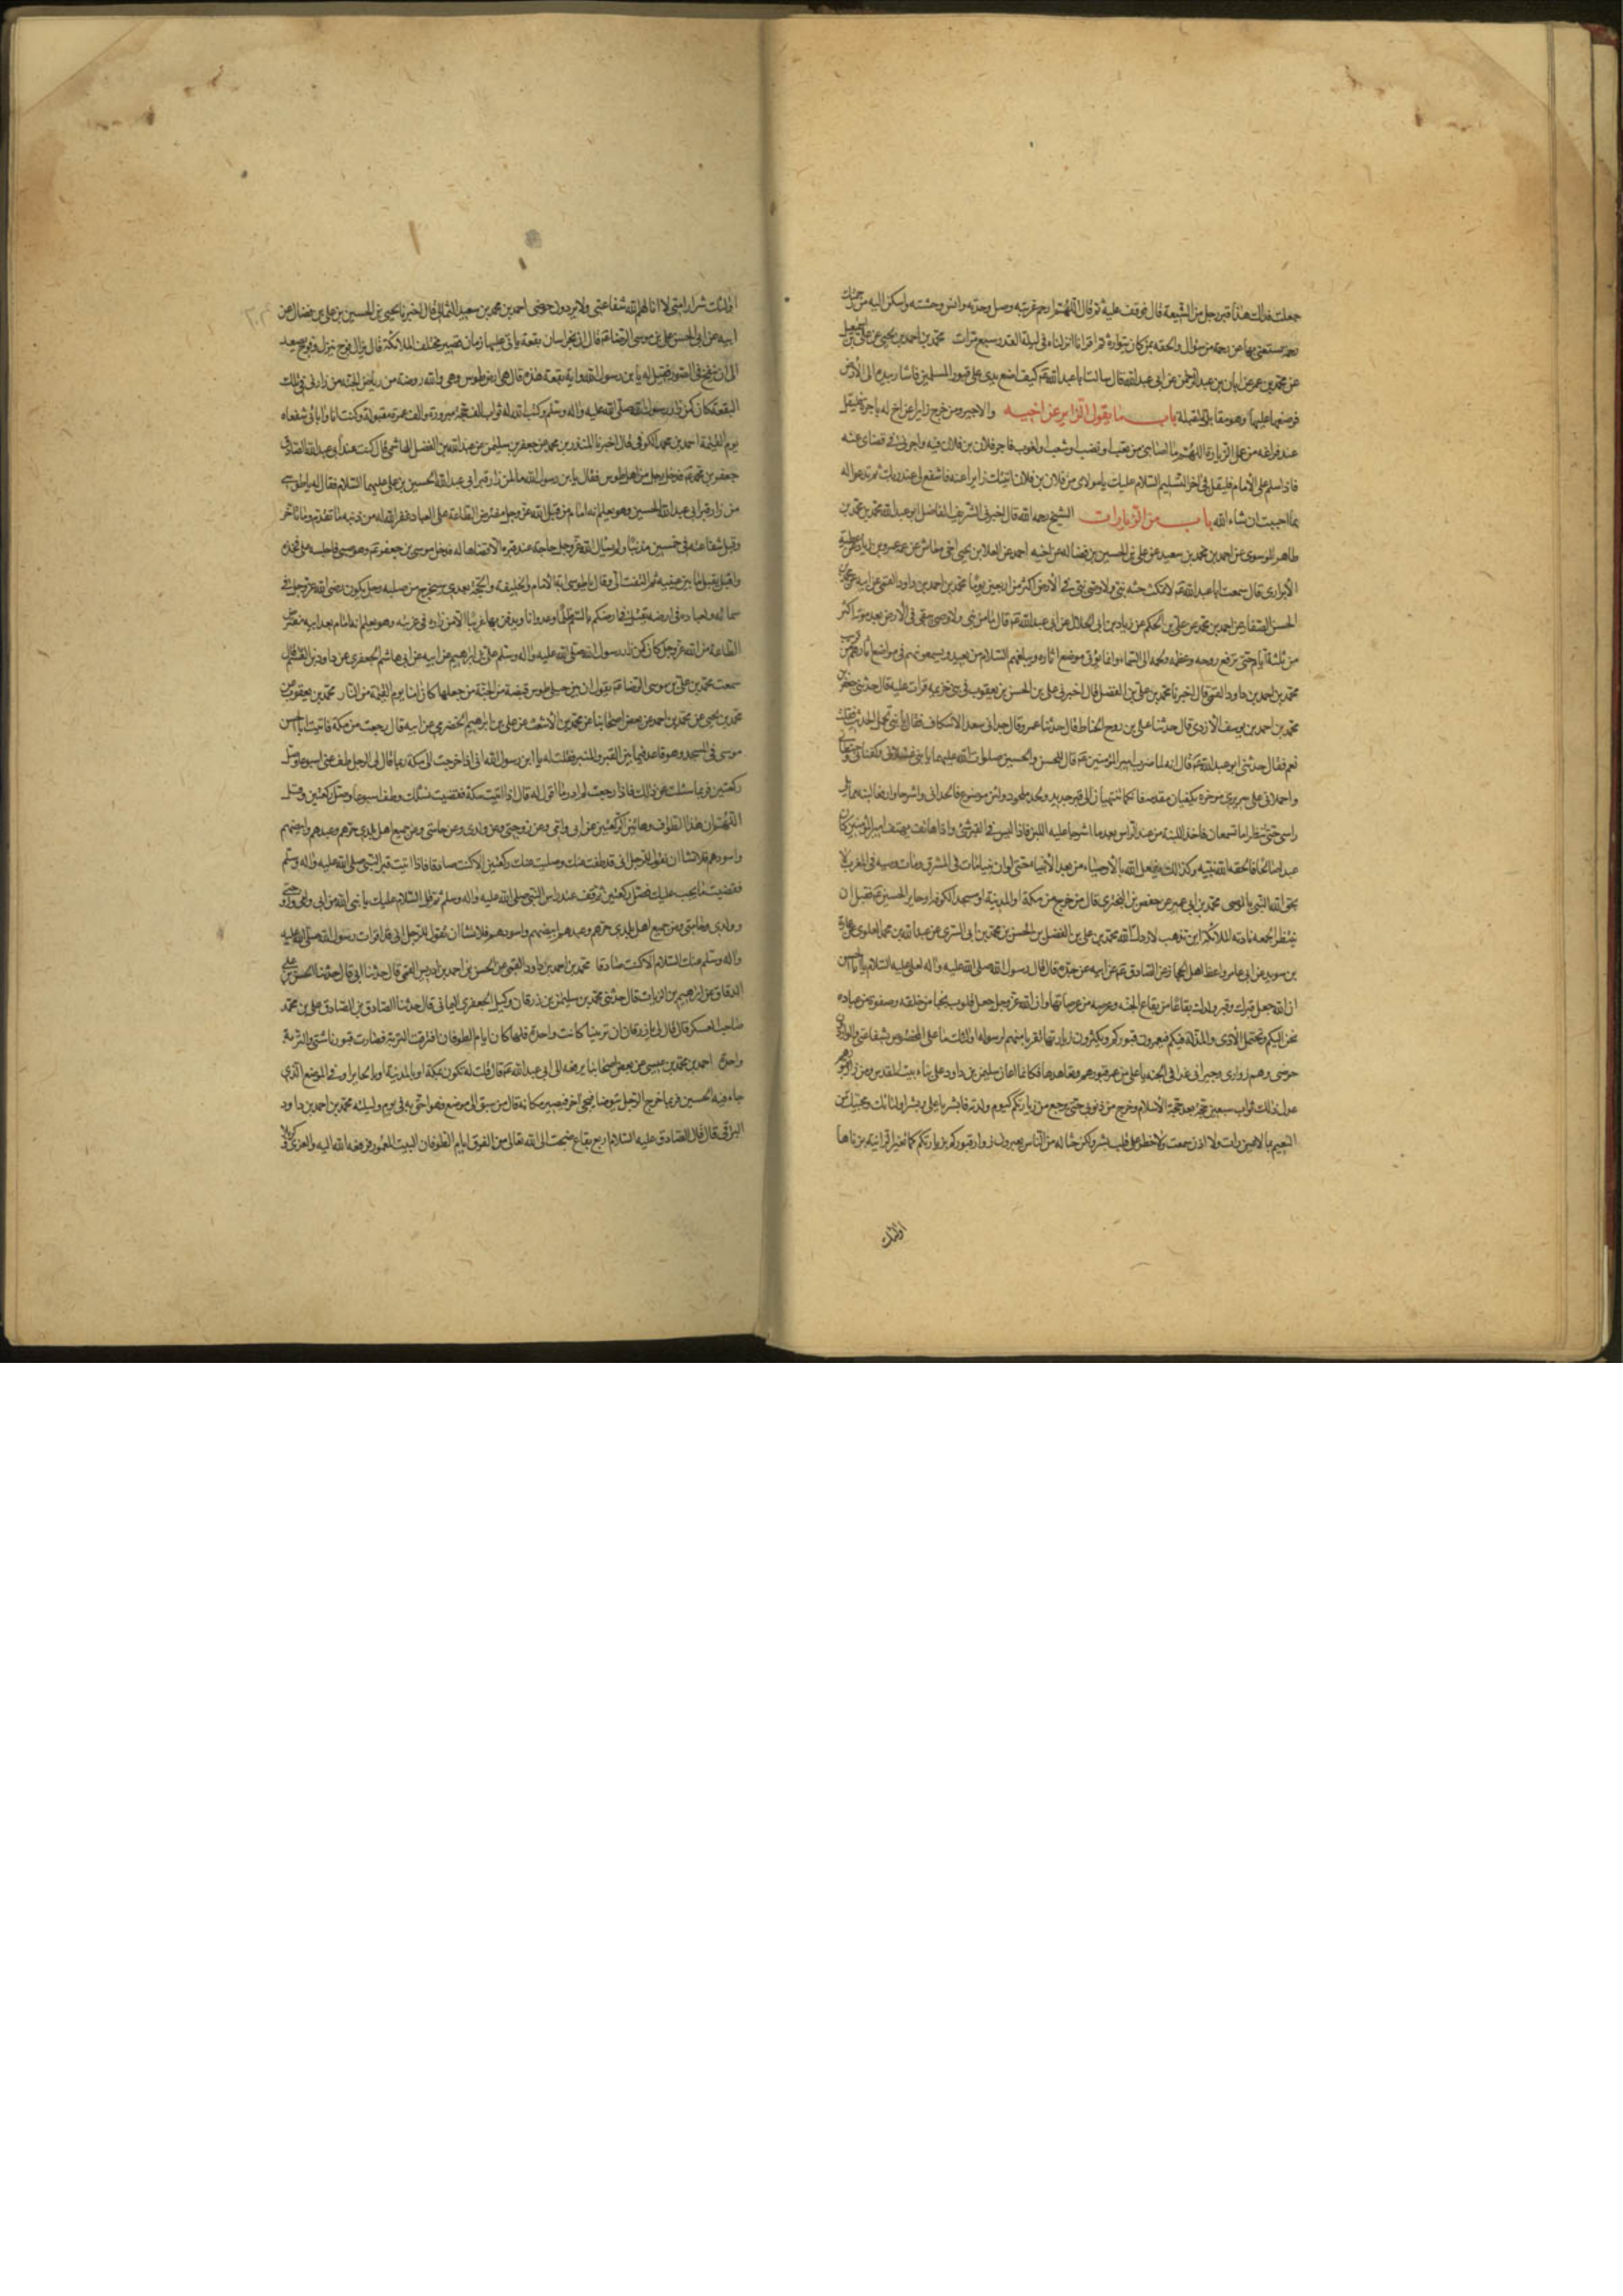 جعلت فداك هذا قبر رجل من الشيعة قال فوقف عليه ثم قال اللهم ارحم غربته وصل وحدته وانس وحشته واسكن اليه من رحمتك
رحمة يستغنى بها عن رحمة من سواك والحقه بمن كان يتولاه ثم اقرا انا انزلناه في ليلة القدر سبع مرات محمد بن احمد بن يحيى عن علي بن اسمعيل
عن محمد بن عمرو عن ابان بن عبد الرحمن عن ابى عبد الله قال سالت ابا عبد الله كيف اضع يدي على قبور المسلمين فاشار بيده الى الأرض
فوضعها عليها وهو مقابل القبلة باب ما يقول الزاير عن اخيه والاجير ومن خرج زايرا عن اخ له باجرة فليقل
عند فراغه من عمل الزيارة اللهم ما اصابني من تعب او نصب او شعث او لغوب فاجر فلان بن فلان فيه واجرني في قضاى عنه
فاذا سلم على الأمام فليقل في اخر التسليم السلام عليك يا مولاى من فلان بن فلان اتيتك زايرا عنه فاشفع لى عند ربك ثم تدعو له
بما احببت ان شاء الله باب من الزيارات الشيخ رحمه الله قال اخبرني الشريف الفاضل ابو عبد الله محمد بن محمد بن
طاهر الموسوى عن احمد بن محمد بن سعيد عن علي بن الحسين بن فضاله عن اخيه احمد عن العلا بن يحيى اخى عن عمرو بن زياد عن عطية
الأبزارى قال سمعت ابا عبد الله يقول لا تمكث جثة نبي ولا وصى نبي في الأرض اكثر من اربعين يوما محمد بن احمد بن داود القمي عن ابيه عن محمد بن
الحسن الصفار عن احمد بن محمد عن علي بن الحكم عن زياد بن ابى الحلال عن ابى عبد الله قال ما من نبي ولا وصى يبقى في الأرض بعد موته اكثر
من ثلثة ايام حتى ترفع روحه وعظمه ولحمه الى السماء وانما يؤتى موضع اثاره ويبلغهم السلام من بعيد ويسمعونهم في مواضع اثارهم من قريب
محمد بن احمد بن داود القمي قال اخبرنا محمد بن علي بن الفضل قال اخبرني علي بن الحسن بن يعقوب في بنى خزيمه قراءت عليه قال حدثني جعفر بن
محمد بن احمد بن يوسف الأزدى قال حدثنا علي بن بزرج الخياط قال حدثنا عمرو قال جاءنى سعد الاسكاف فقال يا بني تحمل الحديث فقلت
نعم فقال حدثني ابو عبد الله قال انه لما اصيب امير المؤمنين قال للحسن والحسين صلوات الله عليهما يا بنى غسلانى وكفنانى وحنطانى
واحملانى على سريرى موخره تكفيان مقدمه فانكما تنتهيان الى قبر محفور ولحد ملحود ولبن موضوع فالحدانى واشرجا اللبن وارفعا لبنة مما يلى
راسي حتى تنظرا ما تسمعان فاخذا اللبنة من عند الرأس بعد ما اشرجا عليه اللبن فاذا ليس في القبر شئ واذا هاتف يهتف امير المؤمنين كان
عبدا صالحا فالحقه الله بنبيه وكذلك يفعل الله بالأوصياء من بعد الأنبياء حتى لو ان نبيا مات في المشرق ومات وصيه في المغرب لا
لحق الله النبي بالوصى محمد بن ابى عمير عن حفص بن البخترى قال من خرج من مكة او المدينة او مسجد الكوفه او حاير الحسين قبل ان
ينتظر الجمعه نادته الملائكة اين تذهب لا ردك الله محمد بن علي بن الفضل عن الحسن بن محمد بن ابى السرى عن عبد الله بن محمد البلوى عن عمارة
بن سويد عن ابى عامر واعظ اهل الحجاز عن الصادق عن ابيه عن جده قال قال رسول الله صلى الله عليه واله لعلى عليه السلام يا ابا الحسن
ان الله جعل قبرك وقبر ولدك بقاعا من بقاع الجنة وعرصة من عرصاتها وان الله عز وجل جعل قلوب نجبا من خلقه وصفوة من عباده
تحن اليكم وتحتمل الأذى والمذلة فيكم فيعمرون قبوركم ويكثرون زيارتها تقربا منهم لرسوله اولئك يا على المخصوصين بشفاعتى والواردون
حوضى وهم زوارى وجيرانى غدا في الجنه يا على من عمر قبورهم وتعاهدها فكانما اعان سليمن بن داود على بناء بيت المقدس ومن زار قبورهم
عدل ذلك ثواب سبعين حجة بعد حجة الأسلام وخرج من ذنوبه حتى يرجع من زيارتكم كيوم ولدته فابشر يا على وبشر اوليائك ومحبيك من
النعيم بما لا عين رات ولا اذن سمعت ولا خطر على قلب بشر ولكن حثالة من الناس يعيرون زوار قبوركم بزيارتكم كما تعير الزانية بزناها
اولئك
اولئك شرار امتى لا انالهم الله شفاعتى ولا يردون حوضى احمد بن محمد بن سعيد قال اخبرنا يحيى بن الحسين عن علي بن فضال عن
ابيه عن ابى الحسن علي بن موسى الرضا قال ان بخراسان بقعة ياتى عليها زمان تصير مختلف الملائكة قال لا يزال فوج ينزل وفوج يصعد
الى ان ينفخ في الصور فقيل له يا بن رسول الله واية بقعة هذه قال هي ارض طوس وهى والله روضة من رياض الجنة من زارنى في تلك
البقعة كان كمن زار رسول الله صلى الله عليه واله وسلم وكتب الله له ثواب الف حجة مبرورة والف عمرة مقبولة وكنت انا وابائى شفعاه
يوم القيمة احمد بن محمد الكوفى قال اخبرنا المنذر بن محمد عن جعفر بن سليمن عن عبد الله بن الفضل الهاشمى قال كنت عند ابى عبد الله الصادق
جعفر بن محمد فدخل رجل من اهل طوس فقال يا بن رسول الله ما لمن زار قبر ابى عبد الله الحسين بن علي عليهما السلام فقال له يا طوسى
من زار قبر ابى عبد الله الحسين وهو يعلم انه امام من قبل الله عز وجل مفترض الطاعة على العباد غفر الله له من ذنبه ما تقدم وما تاخر
وقبل شفاعته في خمسين مذنبا ولم يسال الله عز وجل حاجة عند قبره الا قضاها له فدخل موسى بن جعفر وهو صبي فاجلسه على فخذه
واقبل يقبل ما بين عينيه ثم التفت الى وقال يا طوسى انه الأمام والخليفة والحجة بعدى سيخرج من صلبه رجل يكون رضى لله عز وجل في
سمائه ولعباده في ارضه يقتل في ارضكم بالسم ظلما وعدوانا ويدفن بها غريبا الا من زاره في غربته وهو يعلم انه امام بعد ابيه مفترض
الطاعة من الله عز وجل كان كمن زار رسول الله صلى الله عليه واله وسلم علي بن ابرهيم عن ابيه عن ابى هاشم الجعفرى عن داود بن القاسم قال
سمعت محمد بن علي بن موسى الرضا يقول ان بين جبلى طوس قبضة من الجنة من دخلها كان امنا يوم القيمة من النار محمد بن يعقوب عن
محمد بن يحيى عن محمد بن احمد عن بعض اصحابنا عن محمد بن الأشعث عن علي بن ابرهيم الحضرمى عن ابيه قال رجعت من مكة فاتيت ابا الحسن
موسى في المسجد وهو قاعد فيما بين القبر والمنبر فقلت له يا ابن رسول الله انى اذا خرجت الى مكة ربما قال لى الرجل طف عنى اسبوعا وصل
ركعتين فربما شغلت عن ذلك فاذا رجعت لم ادر ما اقول له قال اذا اتيت مكة فقضيت نسكك وطف اسبوعا وصل ركعتين وقل
اللهم ان هذا الطواف وهاتين الركعتين عن ابى وامى وعن زوجتى وعن ولدى وعن حامتى وعن جميع اهل بلدى حرهم وعبدهم وابيضهم
واسودهم فلا تشا ان تقول للرجل انى قد طفت عنك وصليت عنك ركعتين الا كنت صادقا فاذا اتيت قبر النبي صلى الله عليه واله وسلم
فقضيت ما يجب عليك فصل ركعتين ثم قف عند راس النبي صلى الله عليه واله وسلم ثم قل السلام عليك يا نبى الله من ابى وامى وزوجتى
وولدى وحامتى ومن جميع اهل بلدى حرهم وعبدهم وابيضهم واسودهم فلا تشا ان تقول للرجل انى قد اقرات رسول الله صلى الله عليه
واله وسلم عنك السلام الا كنت صادقا محمد بن احمد بن داود القمي عن الحسن بن احمد بن ادريس القمي قال حدثنا ابى قال حدثنا الحسن بن علي
الدقاق عن ابرهيم بن الزيات قال حدثنى محمد بن سليمن بن زرقان وكيل الجعفرى اليمانى قال حدثنا الصادق بن الصادق علي بن محمد
صاحب العسكر قال قال لى يا زرقان ان تربتنا كانت واحدة فلما كان ايام الطوفان افترقت التربة فصارت قبورنا شتى والتربة
واحدة احمد بن محمد بن عيسى عن بعض اصحابنا يرفعه الى ابى عبد الله قال قلت له تكون بمكة او بالمدينة او بالحاير او في المواضع الذى
جاء فيه الحسين فربما خرج الرجل يتوضا فيجئ اخر فيصير مكانه قال من سبق الى موضع فهو احق به في يومه وليلته محمد بن احمد بن داود
البزاقى قال قال الصادق عليه السلام اربع بقاع ضجت الى الله تعالى من الغرق ايام الطوفان البيت المعمور فرفعه الله اليه والغرى وكربلا